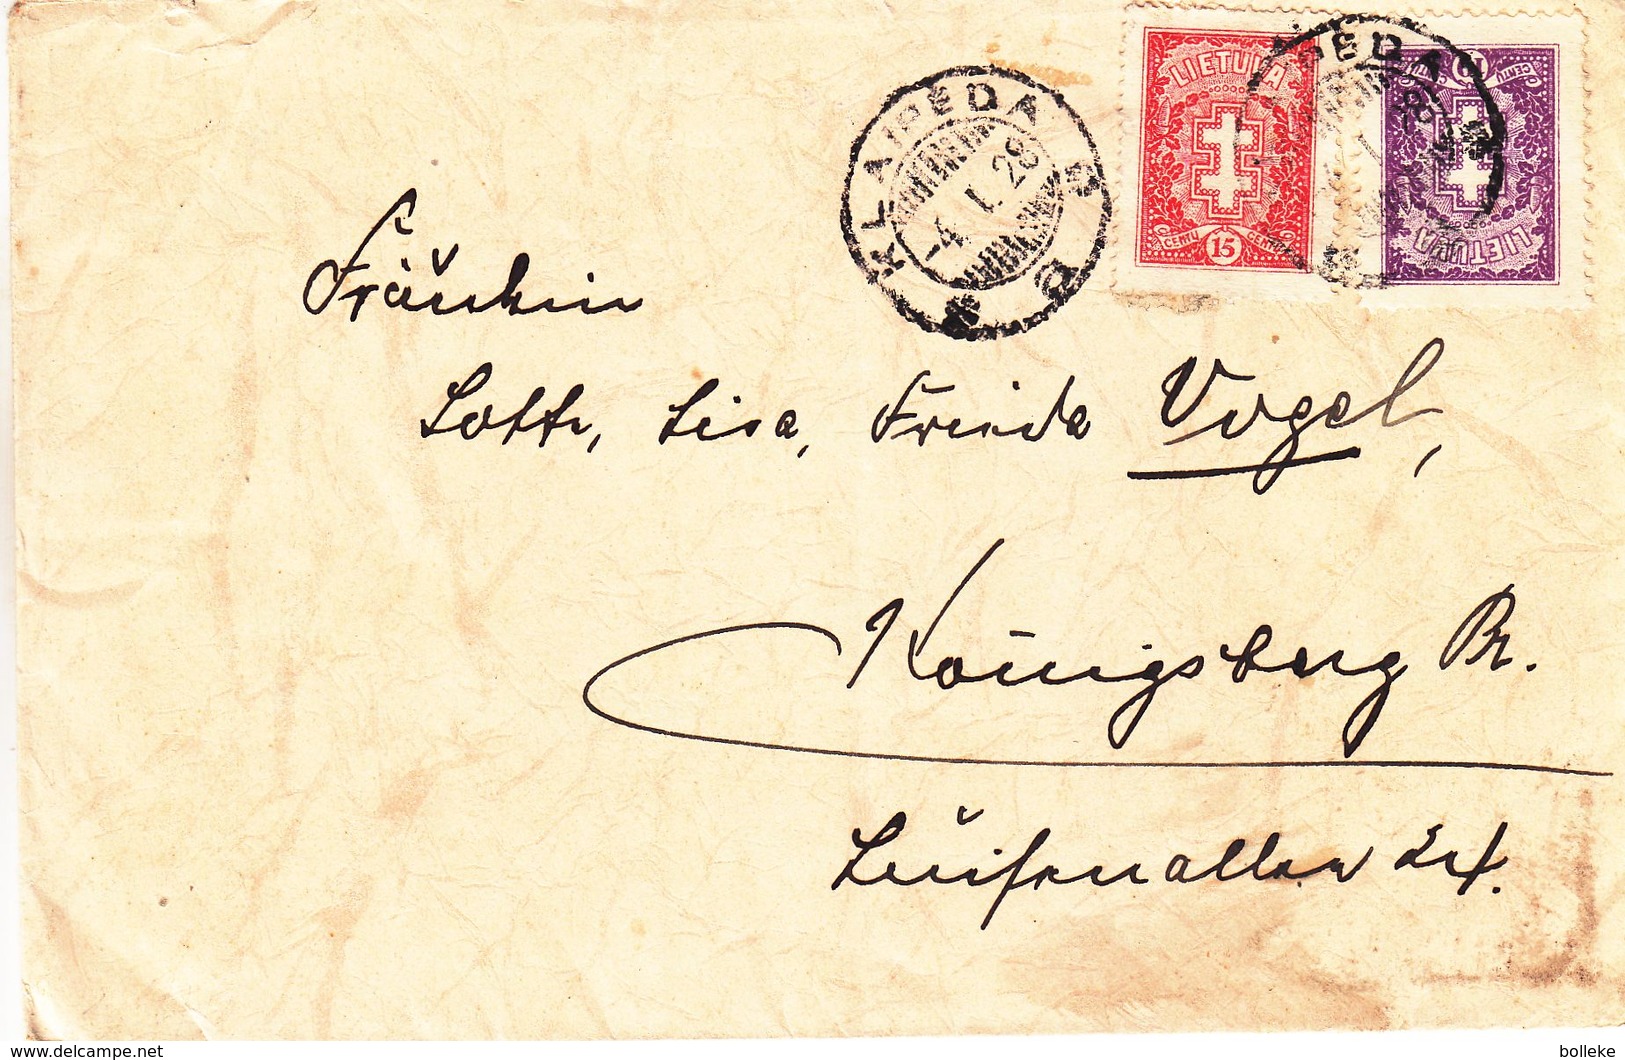 KLAIPĖDA
-4.1.28
LIETUVA
CENTŲ 15 CENTŲ
PĖDA
LIETUVA
CENTŲ CENTŲ
Fräulein
Lotte, Lisa, Frieda Vogel,
Königsberg Pr.
Luisenallee
www.delcampe.net
bolleke